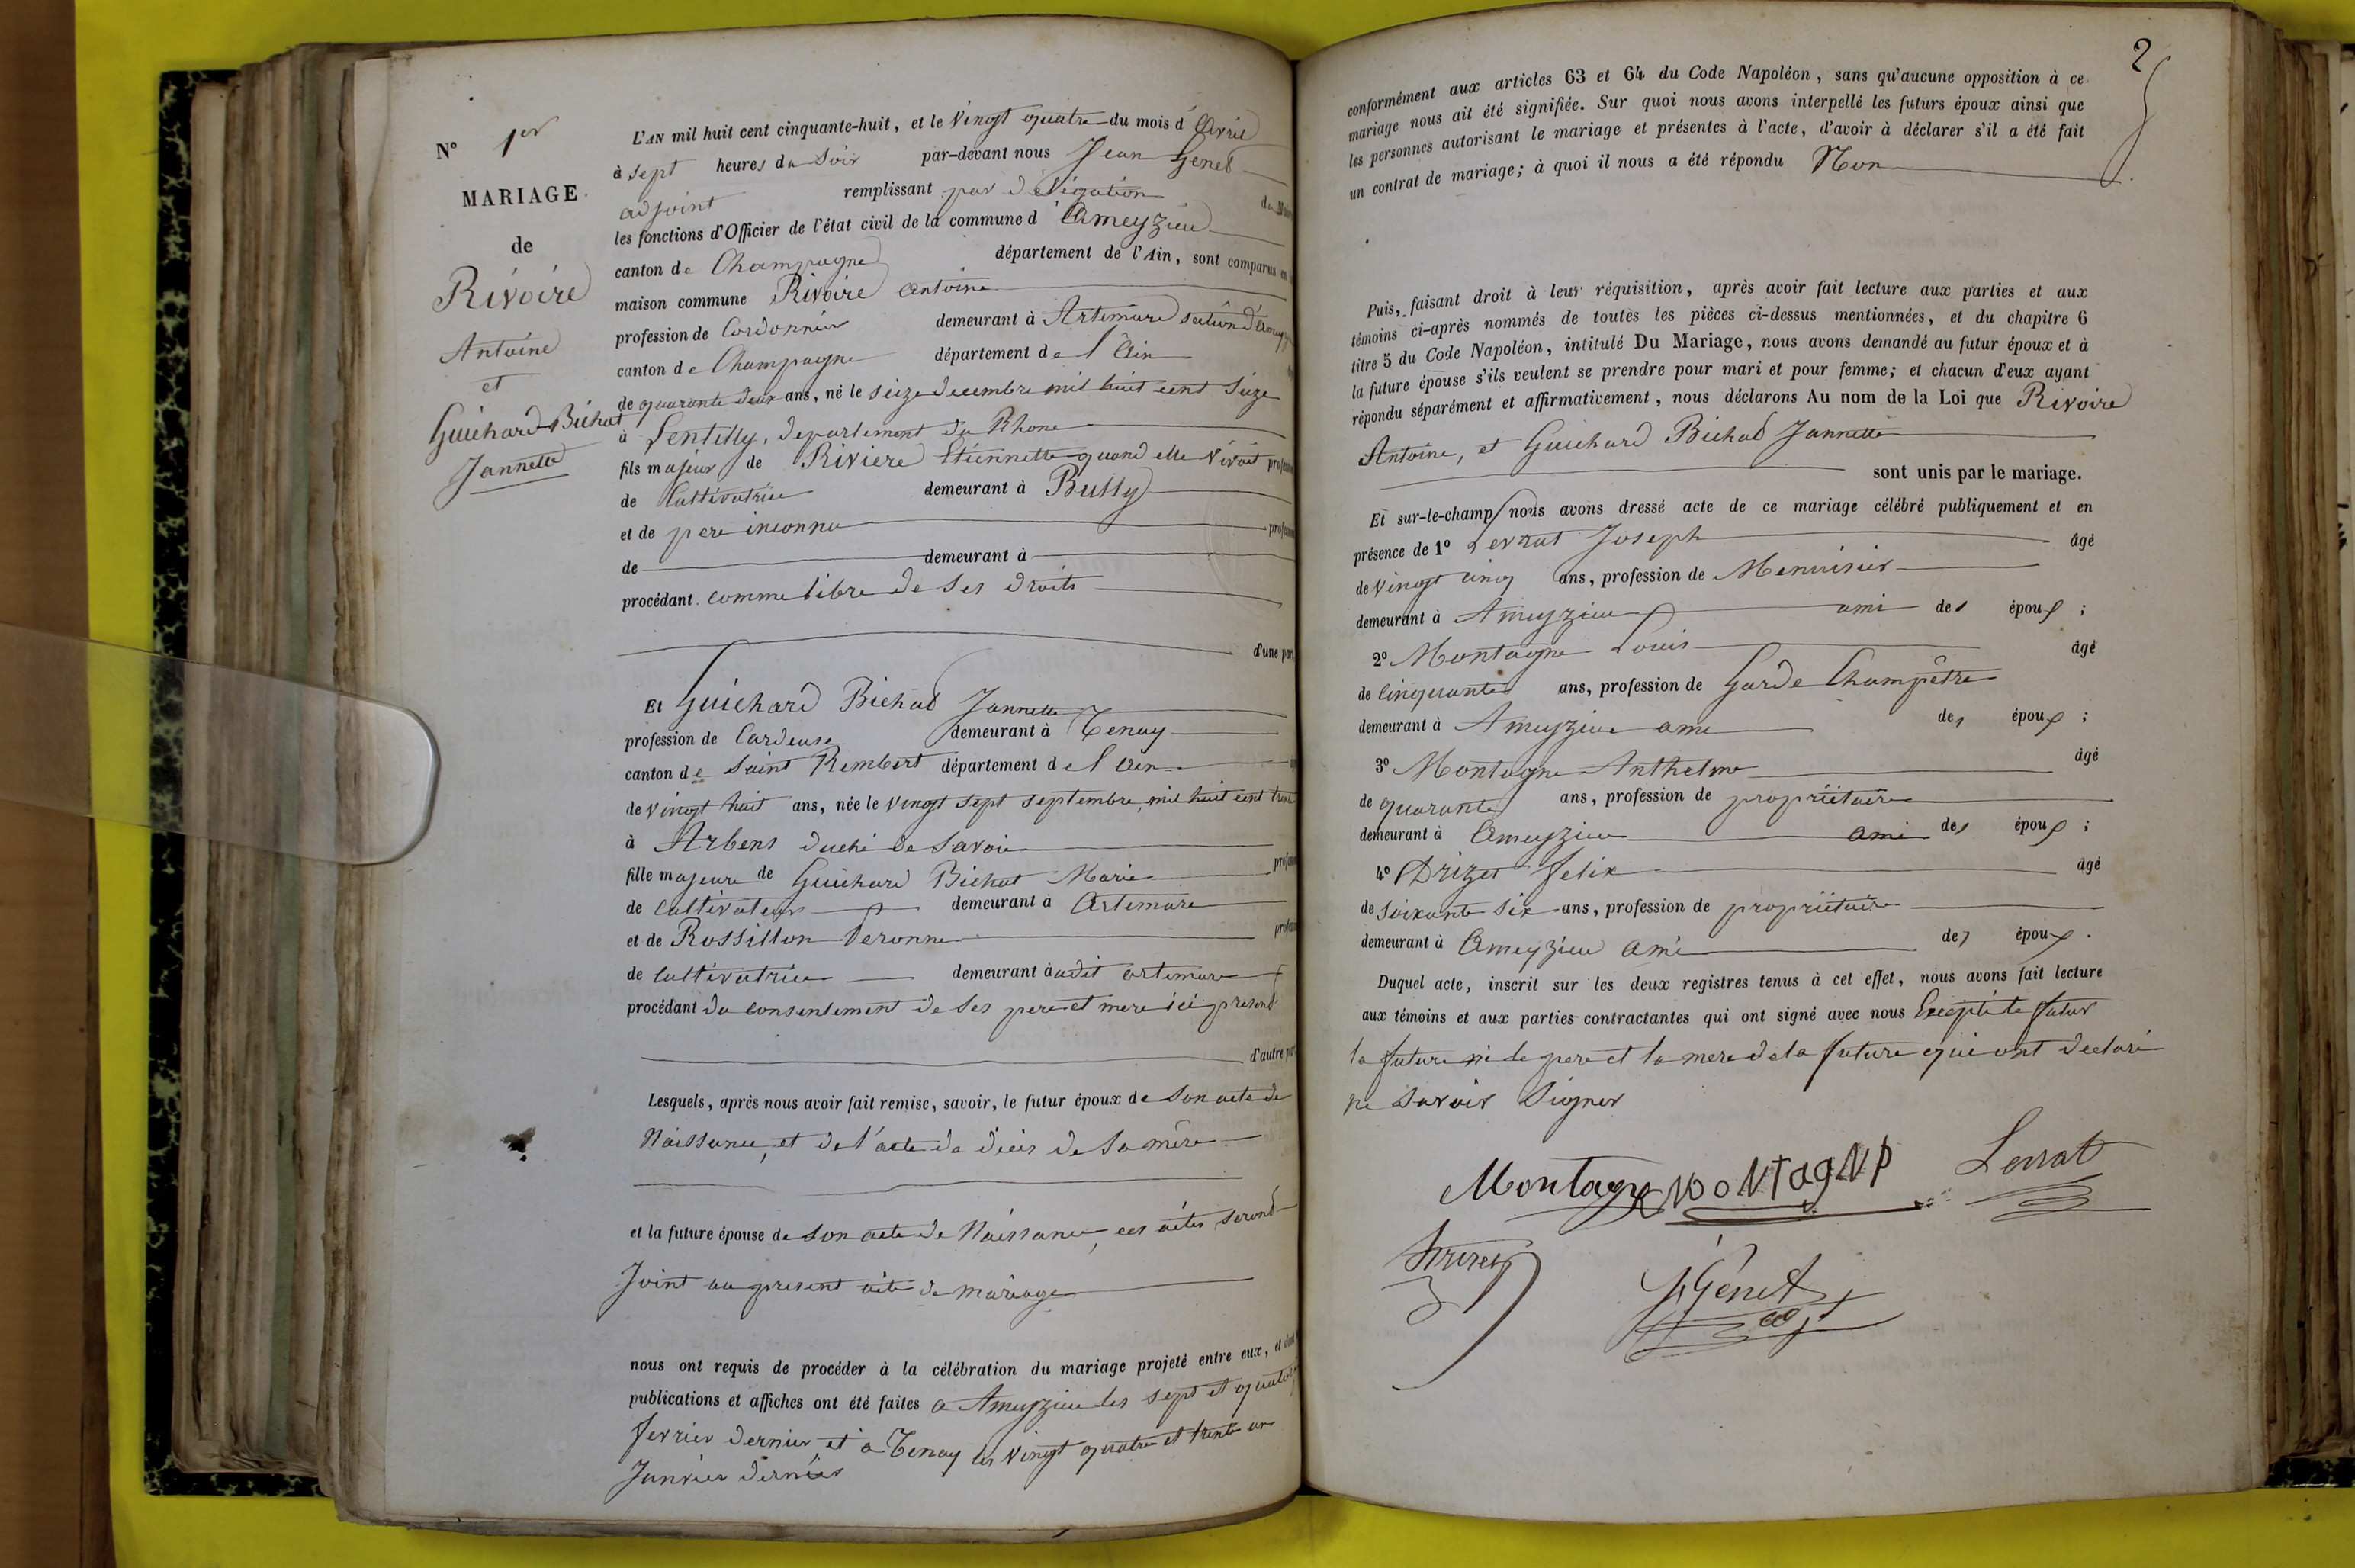 N° 1er
MARIAGE
de
Rivoire
Antoine
et
Guichard-Bichat
Jannette
L'AN mil huit cent cinquante-huit, et le vingt quatre du mois d'Avril
à sept heures du soir par-devant nous Jean Genet
adjoint remplissant par délégation du
les fonctions d'Officier de l'état civil de la commune d'Ameyzieu
canton de Champagne département de l'Ain, sont comparus en
maison commune Rivoire antoine
profession de Cordonnier demeurant à Artemare section d'Ameyzieu
canton de Champagne département de l'Ain
de quarante deux ans, né le seize decembre mil huit cent Sieze
à Sentilly, departement du Rhone
fils majeur de Riviere Etiennette quand elle vivait profession
de Cultivatrice demeurant à Bully
et de pere inconnu profession
de demeurant à
procédant comme libre de ses droits
d'une part,
Et Guichard Bichat Jannette
profession de Cardeuse demeurant à Tenay
canton de Saint Rembert département de l'Ain
de vingt huit ans, née le vingt sept septembre mil huit cent
à Arbens duché de Savoie
fille majeure de Guichard Bichat Marie profession
de Cultivateur demeurant à Artemare
et de Rossillon Peronne profession
de cultivatrice demeurant à udit artemare
procédant du consentement de ses pere et mere ici present
d'autre part
Lesquels, après nous avoir fait remise, savoir, le futur époux de son acte de
Naissance, et de l'acte de décès de sa mère
et la future épouse de son acte de Naissance, ces actes seront
Joint au present acte de mariage
nous ont requis de procéder à la célébration du mariage projeté entre eux, et dont
publications et affiches ont été faites a Ameyzieu les sept et quatorze
fevrier dernier et a Tenay les vingt quatre et trente un
Janvier dernier
2
conformément aux articles 63 et 64 du Code Napoléon, sans qu'aucune opposition à ce
mariage nous ait été signifiée. Sur quoi nous avons interpellé les futurs époux ainsi que
les personnes autorisant le mariage et présentes à l'acte, d'avoir à déclarer s'il a été fait
un contrat de mariage; à quoi il nous a été répondu Non
Puis, faisant droit à leur réquisition, après avoir fait lecture aux parties et aux
témoins ci-après nommés de toutes les pièces ci-dessus mentionnées, et du chapitre 6
titre 5 du Code Napoléon, intitulé Du Mariage, nous avons demandé au futur époux et à
la future épouse s'ils veulent se prendre pour mari et pour femme; et chacun d'eux ayant
répondu séparément et affirmativement, nous déclarons Au nom de la Loi que Rivoire
Antoine, et Guichard Bichat Jannette
sont unis par le mariage.
Et sur-le-champ nous avons dressé acte de ce mariage célébré publiquement et en
présence de 1° Levrat Joseph âgé
de vingt cinq ans, profession de Menuisier
demeurant à Ameyzieu ami des époux ;
2° Montagne Louis âgé
de Cinquante ans, profession de Garde Champêtre
demeurant à Ameyzieu ami des époux ;
3° Montagne Anthelme âgé
de quarante ans, profession de propriétaire
demeurant à Ameyzieu ami des époux ;
4° Drizet felix âgé
de soixante six ans, profession de propriétaire
demeurant à Ameyzieu ami des époux.
Duquel acte, inscrit sur les deux registres tenus à cet effet, nous avons fait lecture
aux témoins et aux parties contractantes qui ont signé avec nous Excepté le futur
la future ni le pere et la mere de la future qui ont declaré
ne savoir signer
Montagne MONTAGNP Levrat
J. Génet
adjt